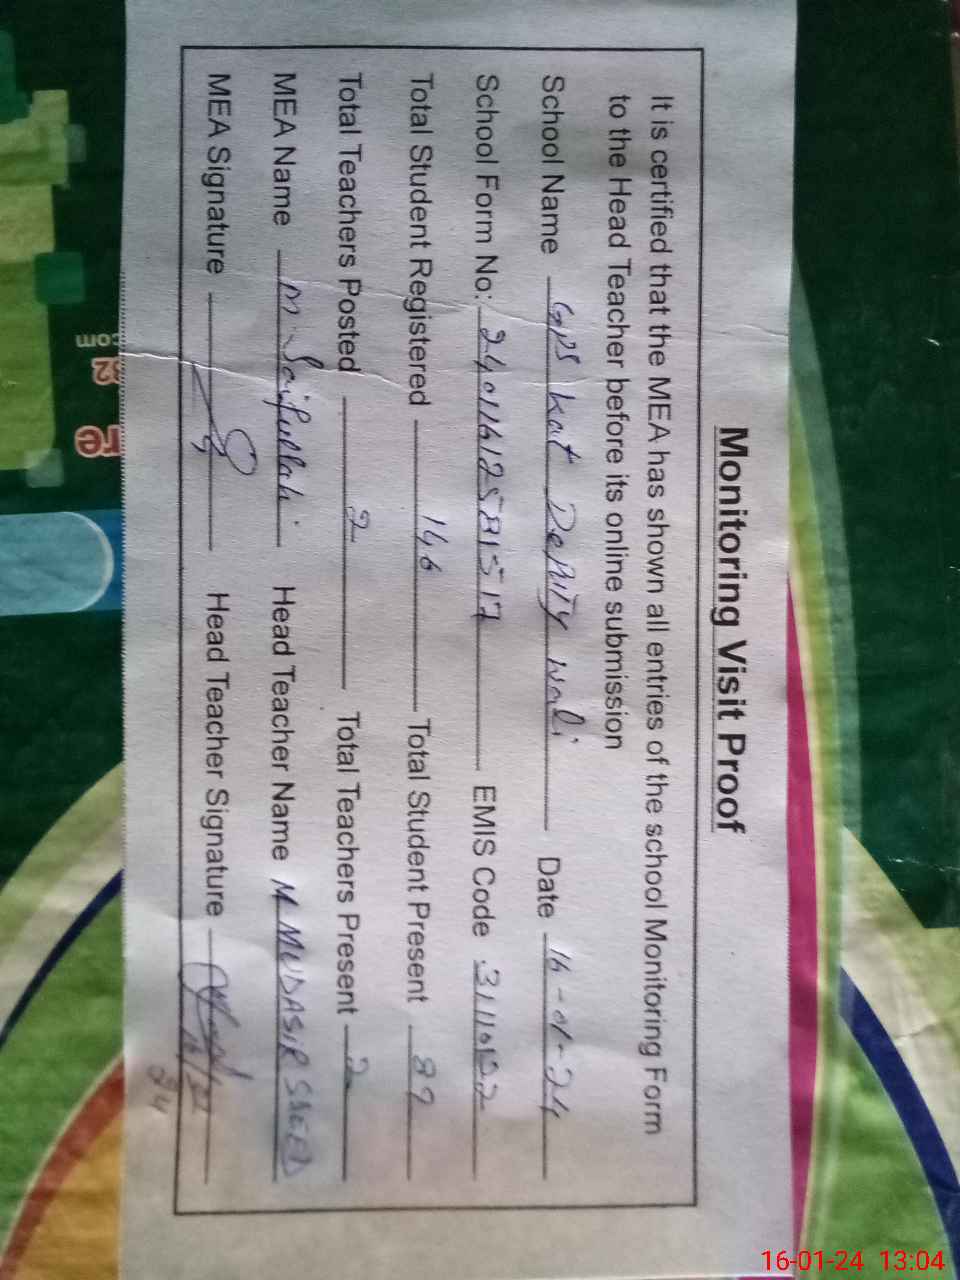 Monitoring Visit Proof
It is certified that the MEA has shown all entries of the school Monitoring Form
to the Head Teacher before its online submission
School Name GPS Kot Deputy Wali Date 16-01-24
School Form No: EMIS Code
Total Student Registered 146 Total Student Present
Total Teachers Posted 2 Total Teachers Present 2
MEA Name M. Saifullah Head Teacher Name M MUDASIR SAEED
MEA Signature Head Teacher Signature
com
16-01-24 13:04